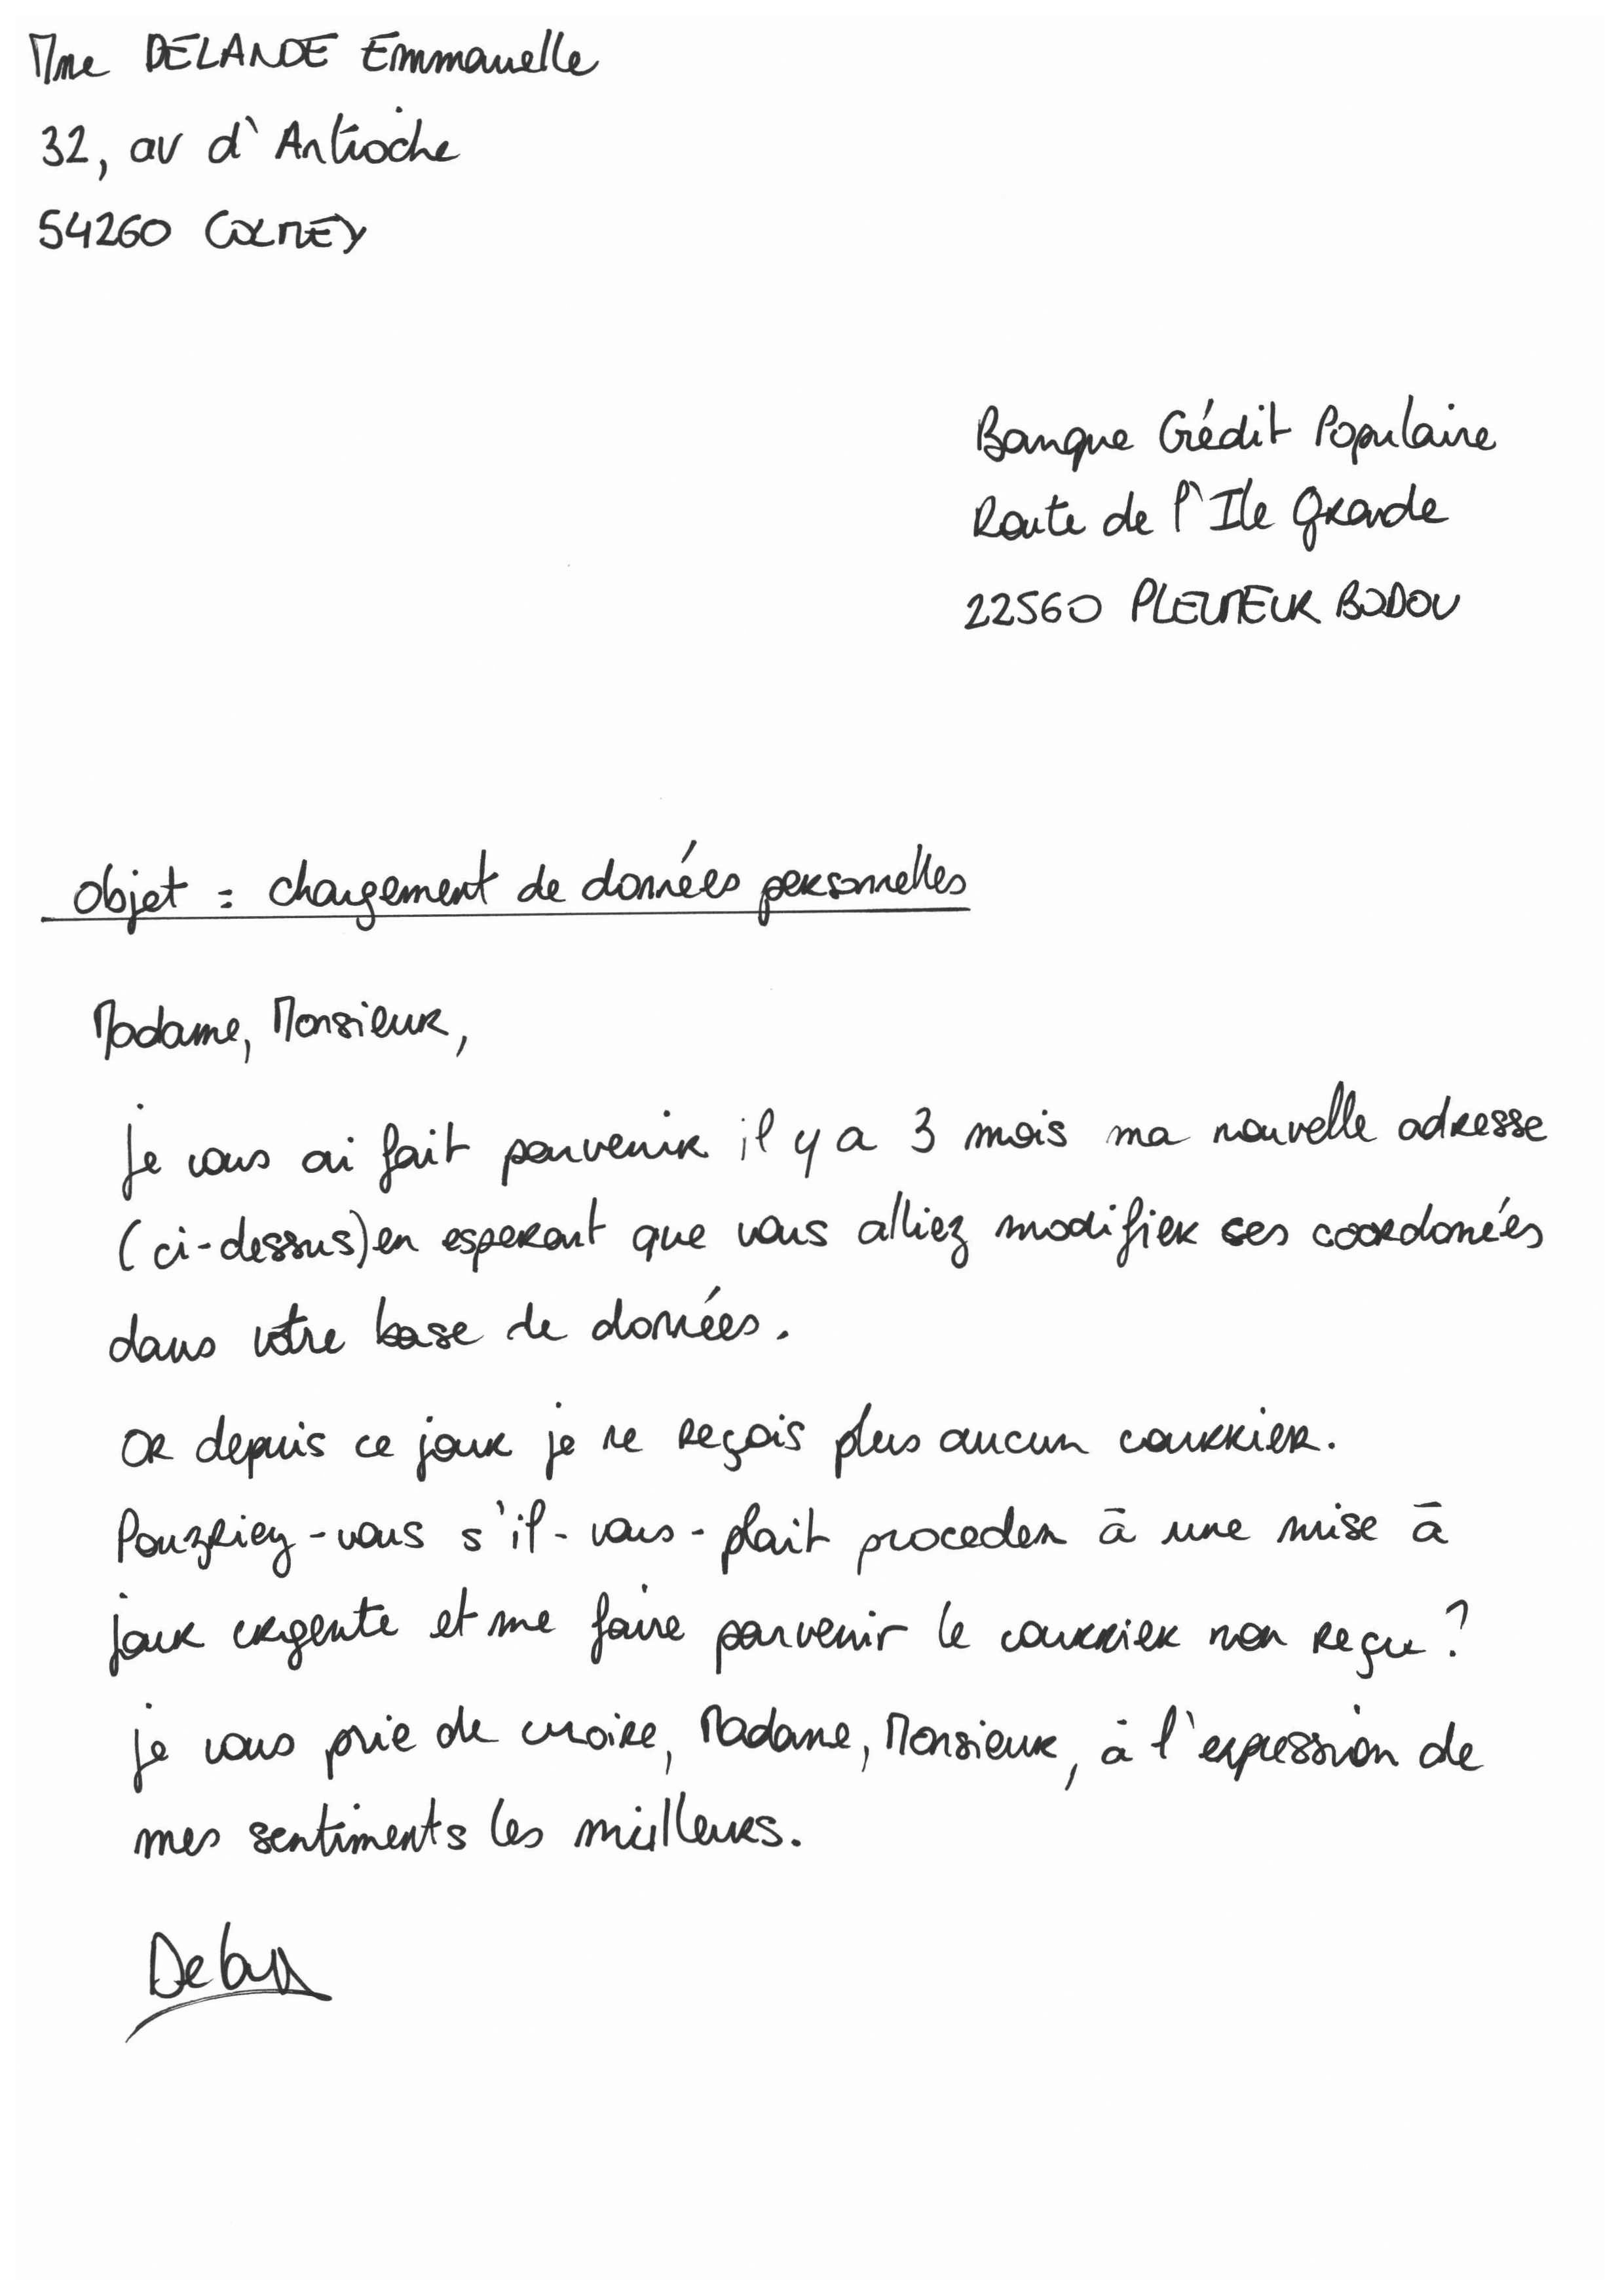 Mme DELANDE Emmanuelle
32, av d'Antioche
54260 COLMEY
Banque Crédit Populaire
Route de l'Ile Grande
22560 PLEUMEUR BODOU
Objet : changement de données personnelles
Madame, Monsieur,
je vous ai fait parvenir il y a 3 mois ma nouvelle adresse
(ci-dessus) en esperant que vous alliez modifier ces coordonnées
dans votre base de données.
Or depuis ce jour je ne reçois plus aucun courrier.
Pourriez-vous s'il-vous-plait proceder à une mise à
jour urgente et me faire parvenir le courrier non reçu ?
je vous prie de croire, Madame, Monsieur, à l'expression de
mes sentiments les meilleurs.